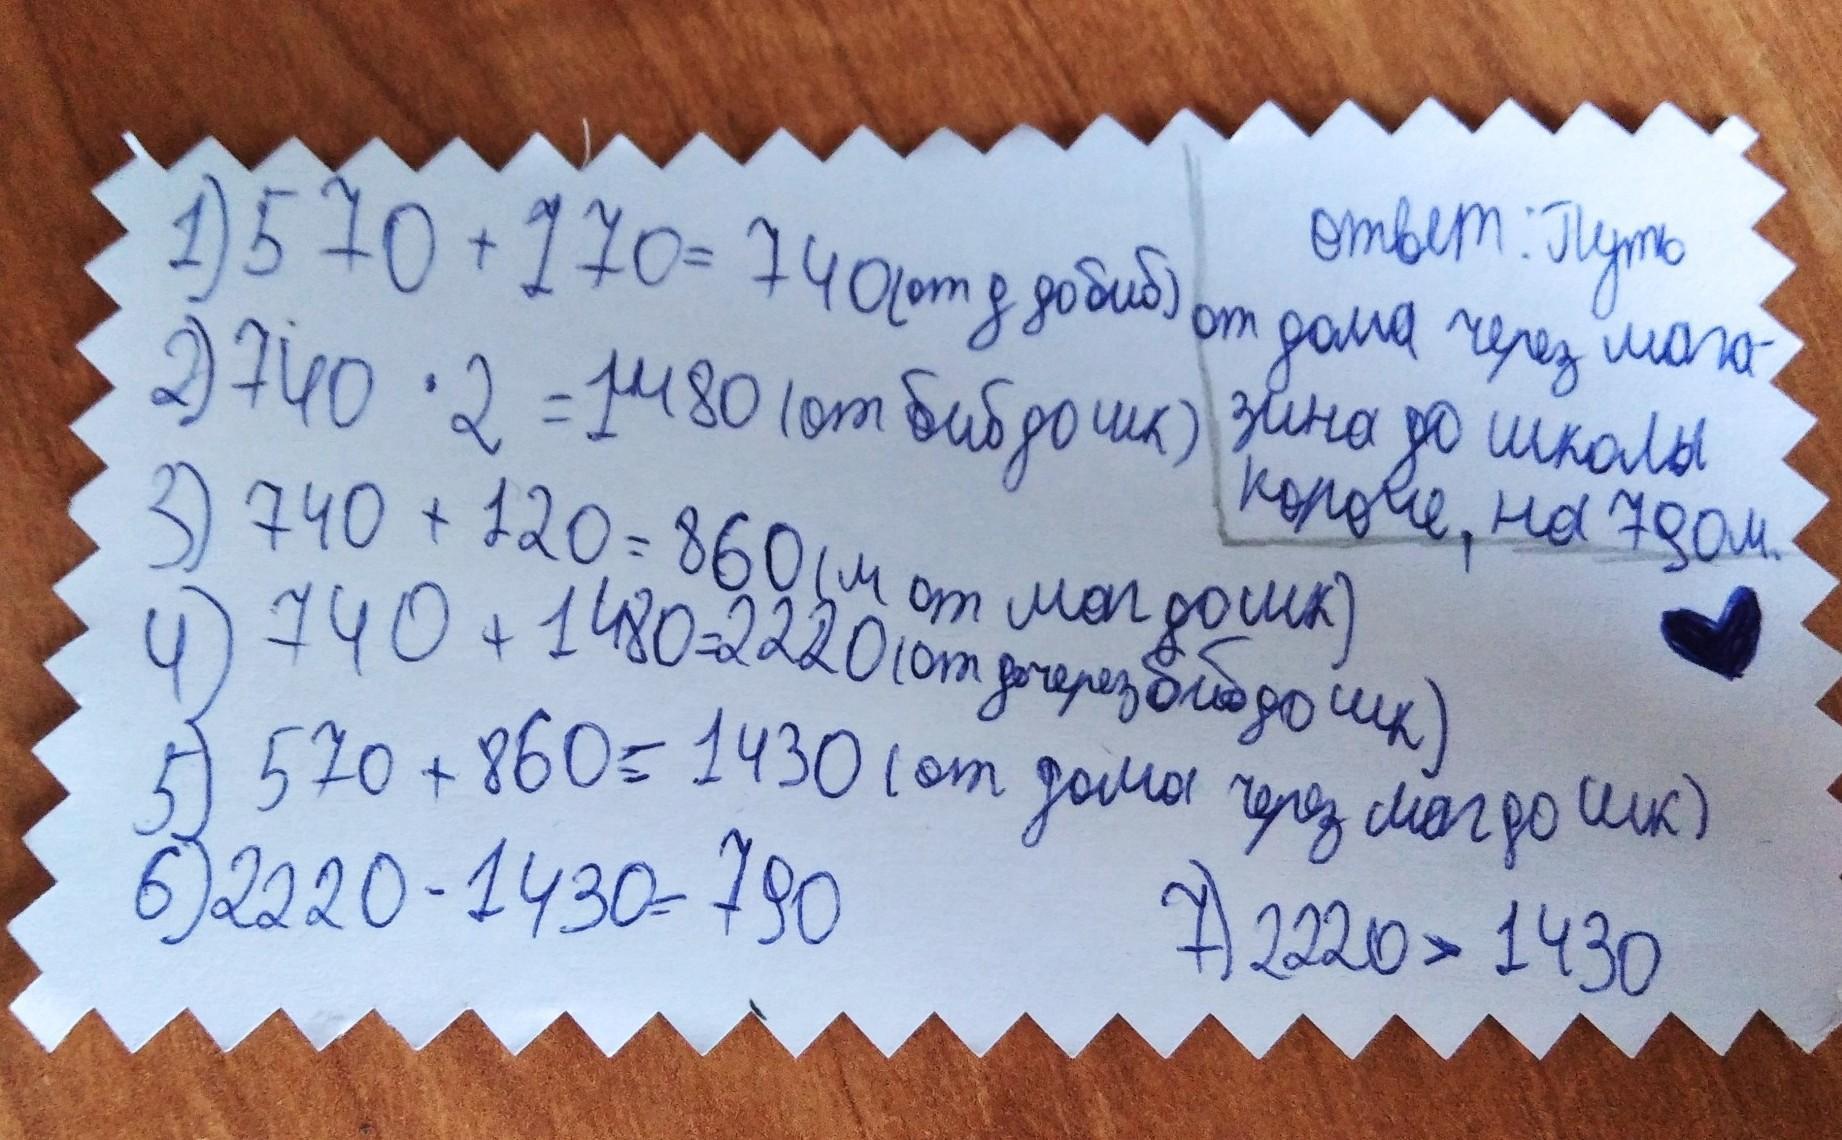 1) 570 + 170 = 740 (от д до биб)
2) 740 · 2 = 1480 (от биб до шк)
3) 740 + 120 = 860 (м от маг до шк)
4) 740 + 1480 = 2220 (от д через биб до шк)
5) 570 + 860 = 1430 (от дома через маг до шк)
6) 2220 - 1430 = 790
7) 2220 > 1430
ответ: Путь
от дома через мага-
зина до школы
короче, на 790 м.